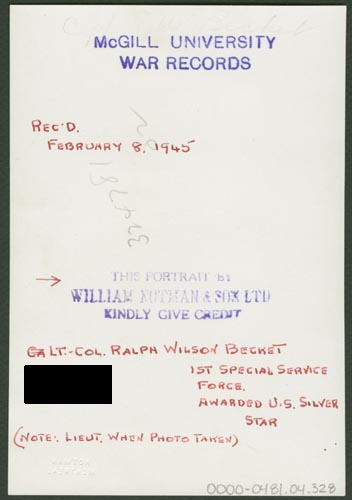 McGILL UNIVERSITY
WAR RECORDS
REC'D.
FEBRUARY 8, 1945
THIS PORTRAIT BY
WILLIAM NOTMAN & SON LTD
KINDLY GIVE CREDIT
LT.-COL. RALPH WILSON BECKET
1ST SPECIAL SERVICE
FORCE.
AWARDED U.S. SILVER
STAR
(NOTE: LIEUT. WHEN PHOTO TAKEN)
NOTMAN
MONTREAL
0000-0481.04.328